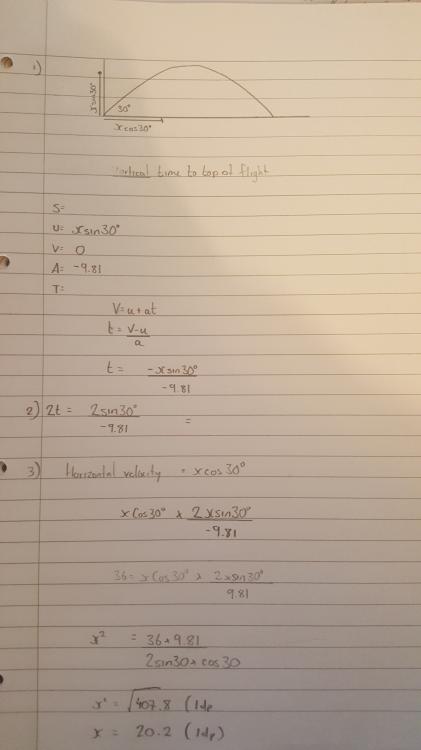 1)
xsin30°
30°
xcos30°
Vertical time to top of flight
S=
U= xsin30°
V= 0
A= -9.81
T=
V=u+at
t= V-u / a
t= -xsin30° / -9.81
2) 2t= 2sin30° / -9.81 =
3) Horizontal velocity = xcos30°
xCos30° × 2xsin30° / -9.81
36= xCos30° × 2xsin30° / 9.81
x² = 36×9.81 / 2sin30×cos30
x² = √407.8 (1dp
x = 20.2 (1dp)